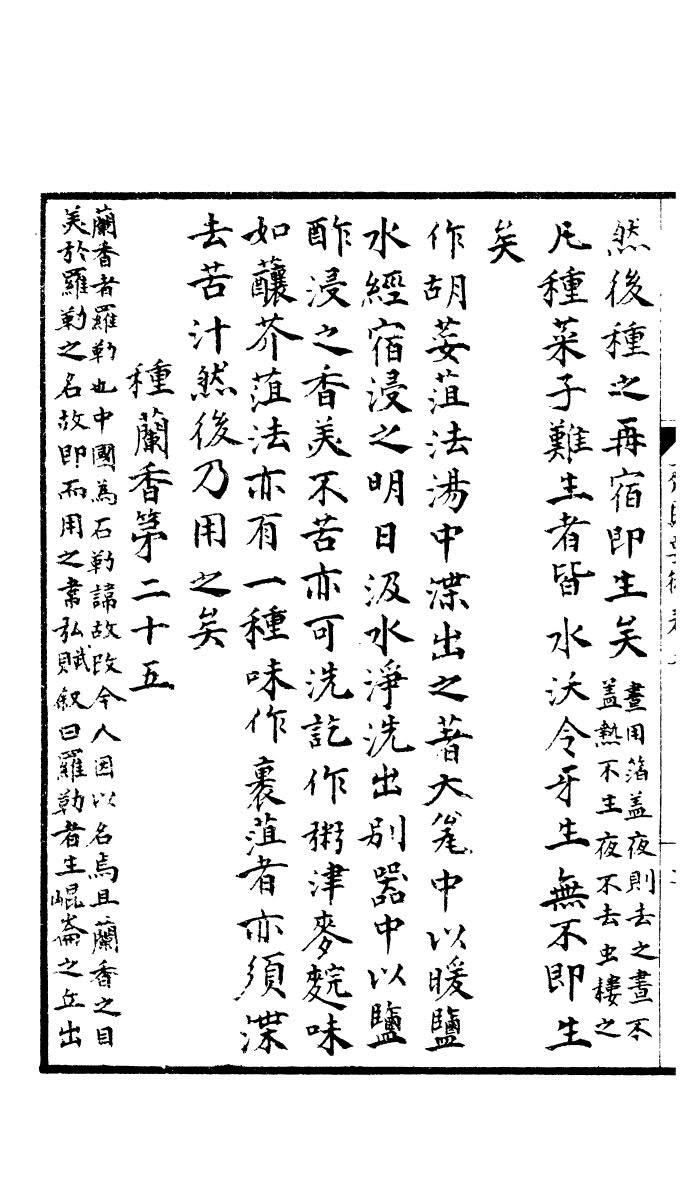 然後種之再宿即生矣晝用箔盖夜則去之晝不盖熱不生夜不去虫棲之
凡種菜子難生者皆水沃令牙生無不即生
矣
作胡荽菹法湯中渫出之著大瓮中以暖鹽
水經宿浸之明日汲水淨洗出别器中以鹽
酢浸之香美不苦亦可洗訖作粥津麥䴷味
如釀芥菹法亦有一種味作裹菹者亦須渫
去苦汁然後乃用之矣
種蘭香第二十五
蘭香者羅勒也中國為石勒諱故改今人因以名焉且蘭香之目
美於羅勒之名故即而用之韋弘賦叙曰羅勒者生崐崙之丘出